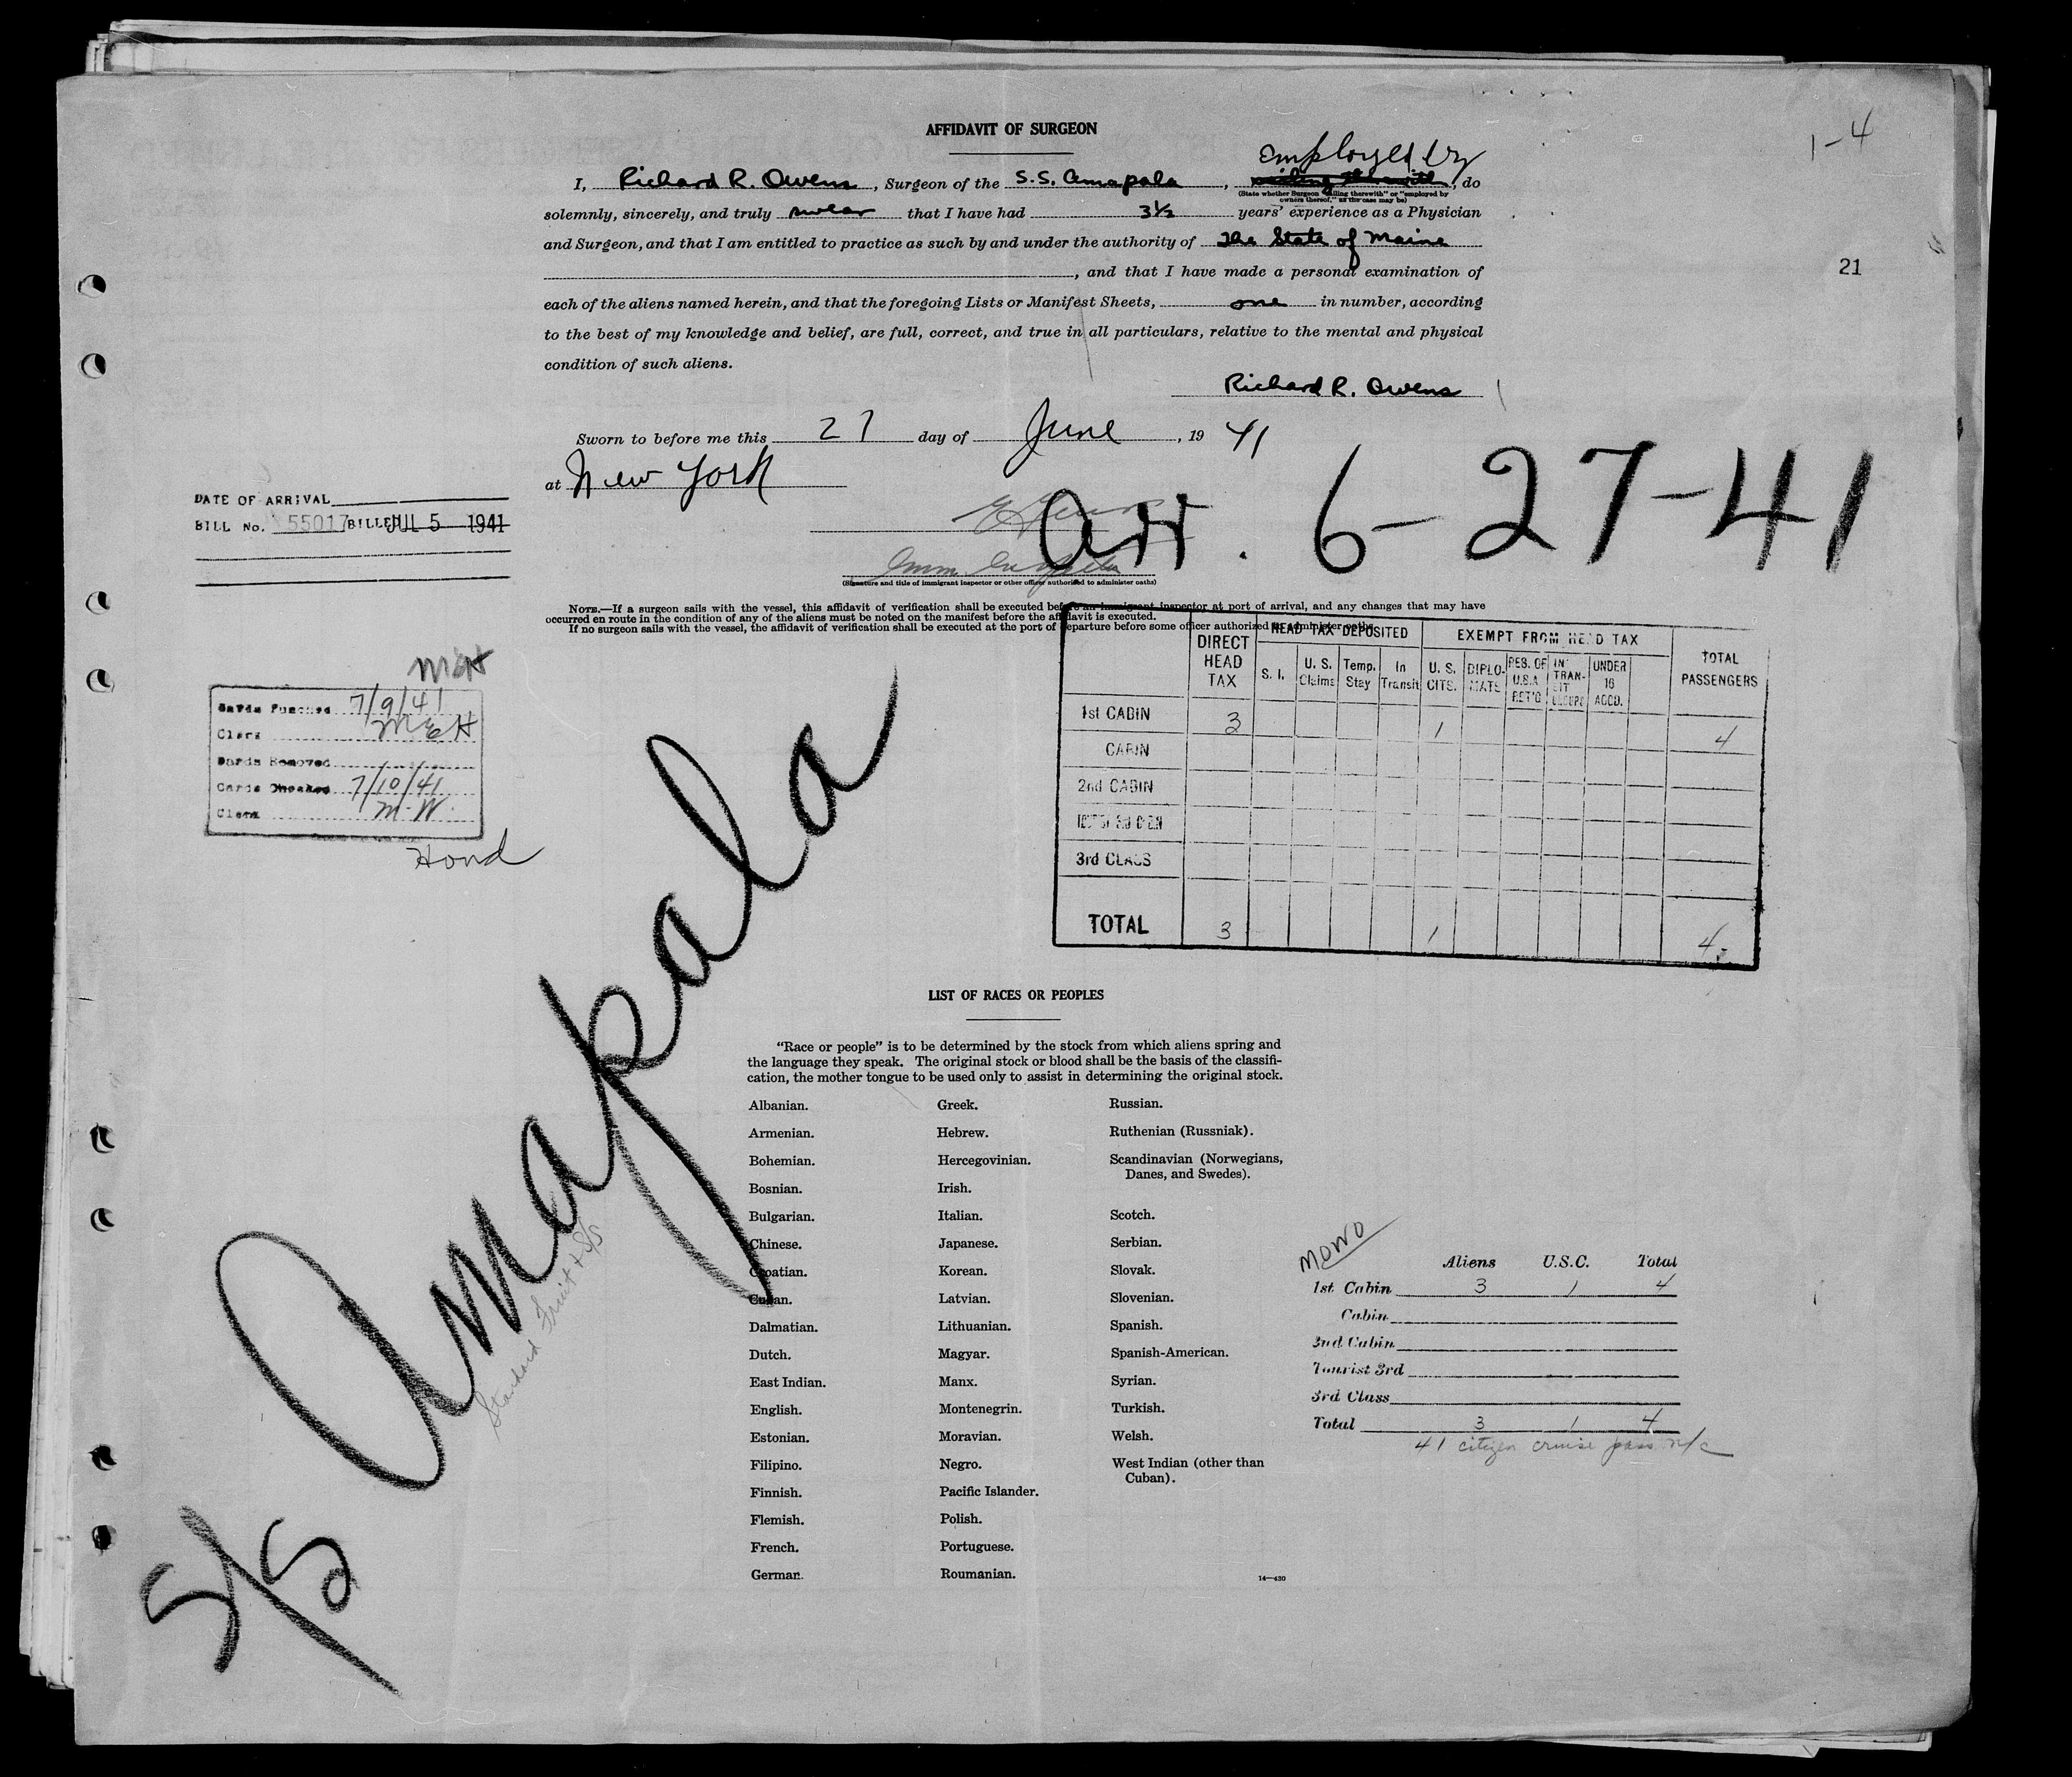 AFFIDAVIT OF SURGEON
1-4
Employed by
I, Richard R. Owens, Surgeon of the S.S. Amapala, sailing therewith, do
(State whether Surgeon "sailing therewith" or "employed by
owners thereof," as the case may be)
solemnly, sincerely, and truly swear that I have had 3½ years' experience as a Physician
and Surgeon, and that I am entitled to practice as such by and under the authority of The State of Maine
, and that I have made a personal examination of
21
each of the aliens named herein, and that the foregoing Lists or Manifest Sheets, one in number, according
to the best of my knowledge and belief, are full, correct, and true in all particulars, relative to the mental and physical
condition of such aliens.
Richard R. Owens
Sworn to before me this 27 day of June, 19 41
at New York
Arr. 6-27-41
DATE OF ARRIVAL
BILL No. 55017 BILLED JUL 5 1941
Imm. Inspector
(Signature and title of immigrant inspector or other officer authorized to administer oaths)
NOTE.—If a surgeon sails with the vessel, this affidavit of verification shall be executed before an immigrant inspector at port of arrival, and any changes that may have
occurred en route in the condition of any of the aliens must be noted on the manifest before the affidavit is executed.
If no surgeon sails with the vessel, the affidavit of verification shall be executed at the port of departure before some officer authorized to administer oaths.
MEH
Cards Punched 7/9/41
Clerk MEH
Cards Removed
Cards Checked 7/10/41
Clerk M.W.
Hond
DIRECT HEAD TAX
HEAD TAX DEPOSITED
EXEMPT FROM HEAD TAX
TOTAL PASSENGERS
S. I.
U. S. Claims
Temp. Stay
In Transit
U. S. CITS.
DIPLO-MATS
RES. OF U.S.A RET'G
IN TRAN-SIT
UNDER 16 ACCD.
1st CABIN 3 1 4
CABIN
2nd CABIN
3rd CLASS
TOTAL 3 1 4
S/S Amapala
Standard Fruit & S/S
LIST OF RACES OR PEOPLES
"Race or people" is to be determined by the stock from which aliens spring and
the language they speak. The original stock or blood shall be the basis of the classifi-
cation, the mother tongue to be used only to assist in determining the original stock.
Albanian. Greek. Russian.
Armenian. Hebrew. Ruthenian (Russniak).
Bohemian. Hercegovinian. Scandinavian (Norwegians,
Danes, and Swedes).
Bosnian. Irish.
Bulgarian. Italian. Scotch.
Chinese. Japanese. Serbian.
Croatian. Korean. Slovak.
Cuban. Latvian. Slovenian.
Dalmatian. Lithuanian. Spanish.
Dutch. Magyar. Spanish-American.
East Indian. Manx. Syrian.
English. Montenegrin. Turkish.
Estonian. Moravian. Welsh.
Filipino. Negro. West Indian (other than
Cuban).
Finnish. Pacific Islander.
Flemish. Polish.
French. Portuguese.
German. Roumanian.
14—430
Aliens U.S.C. Total
1st Cabin 3 1 4
Cabin
2nd Cabin
Tourist 3rd
3rd Class
Total 3 1 4
41 citizen cruise pass n/c